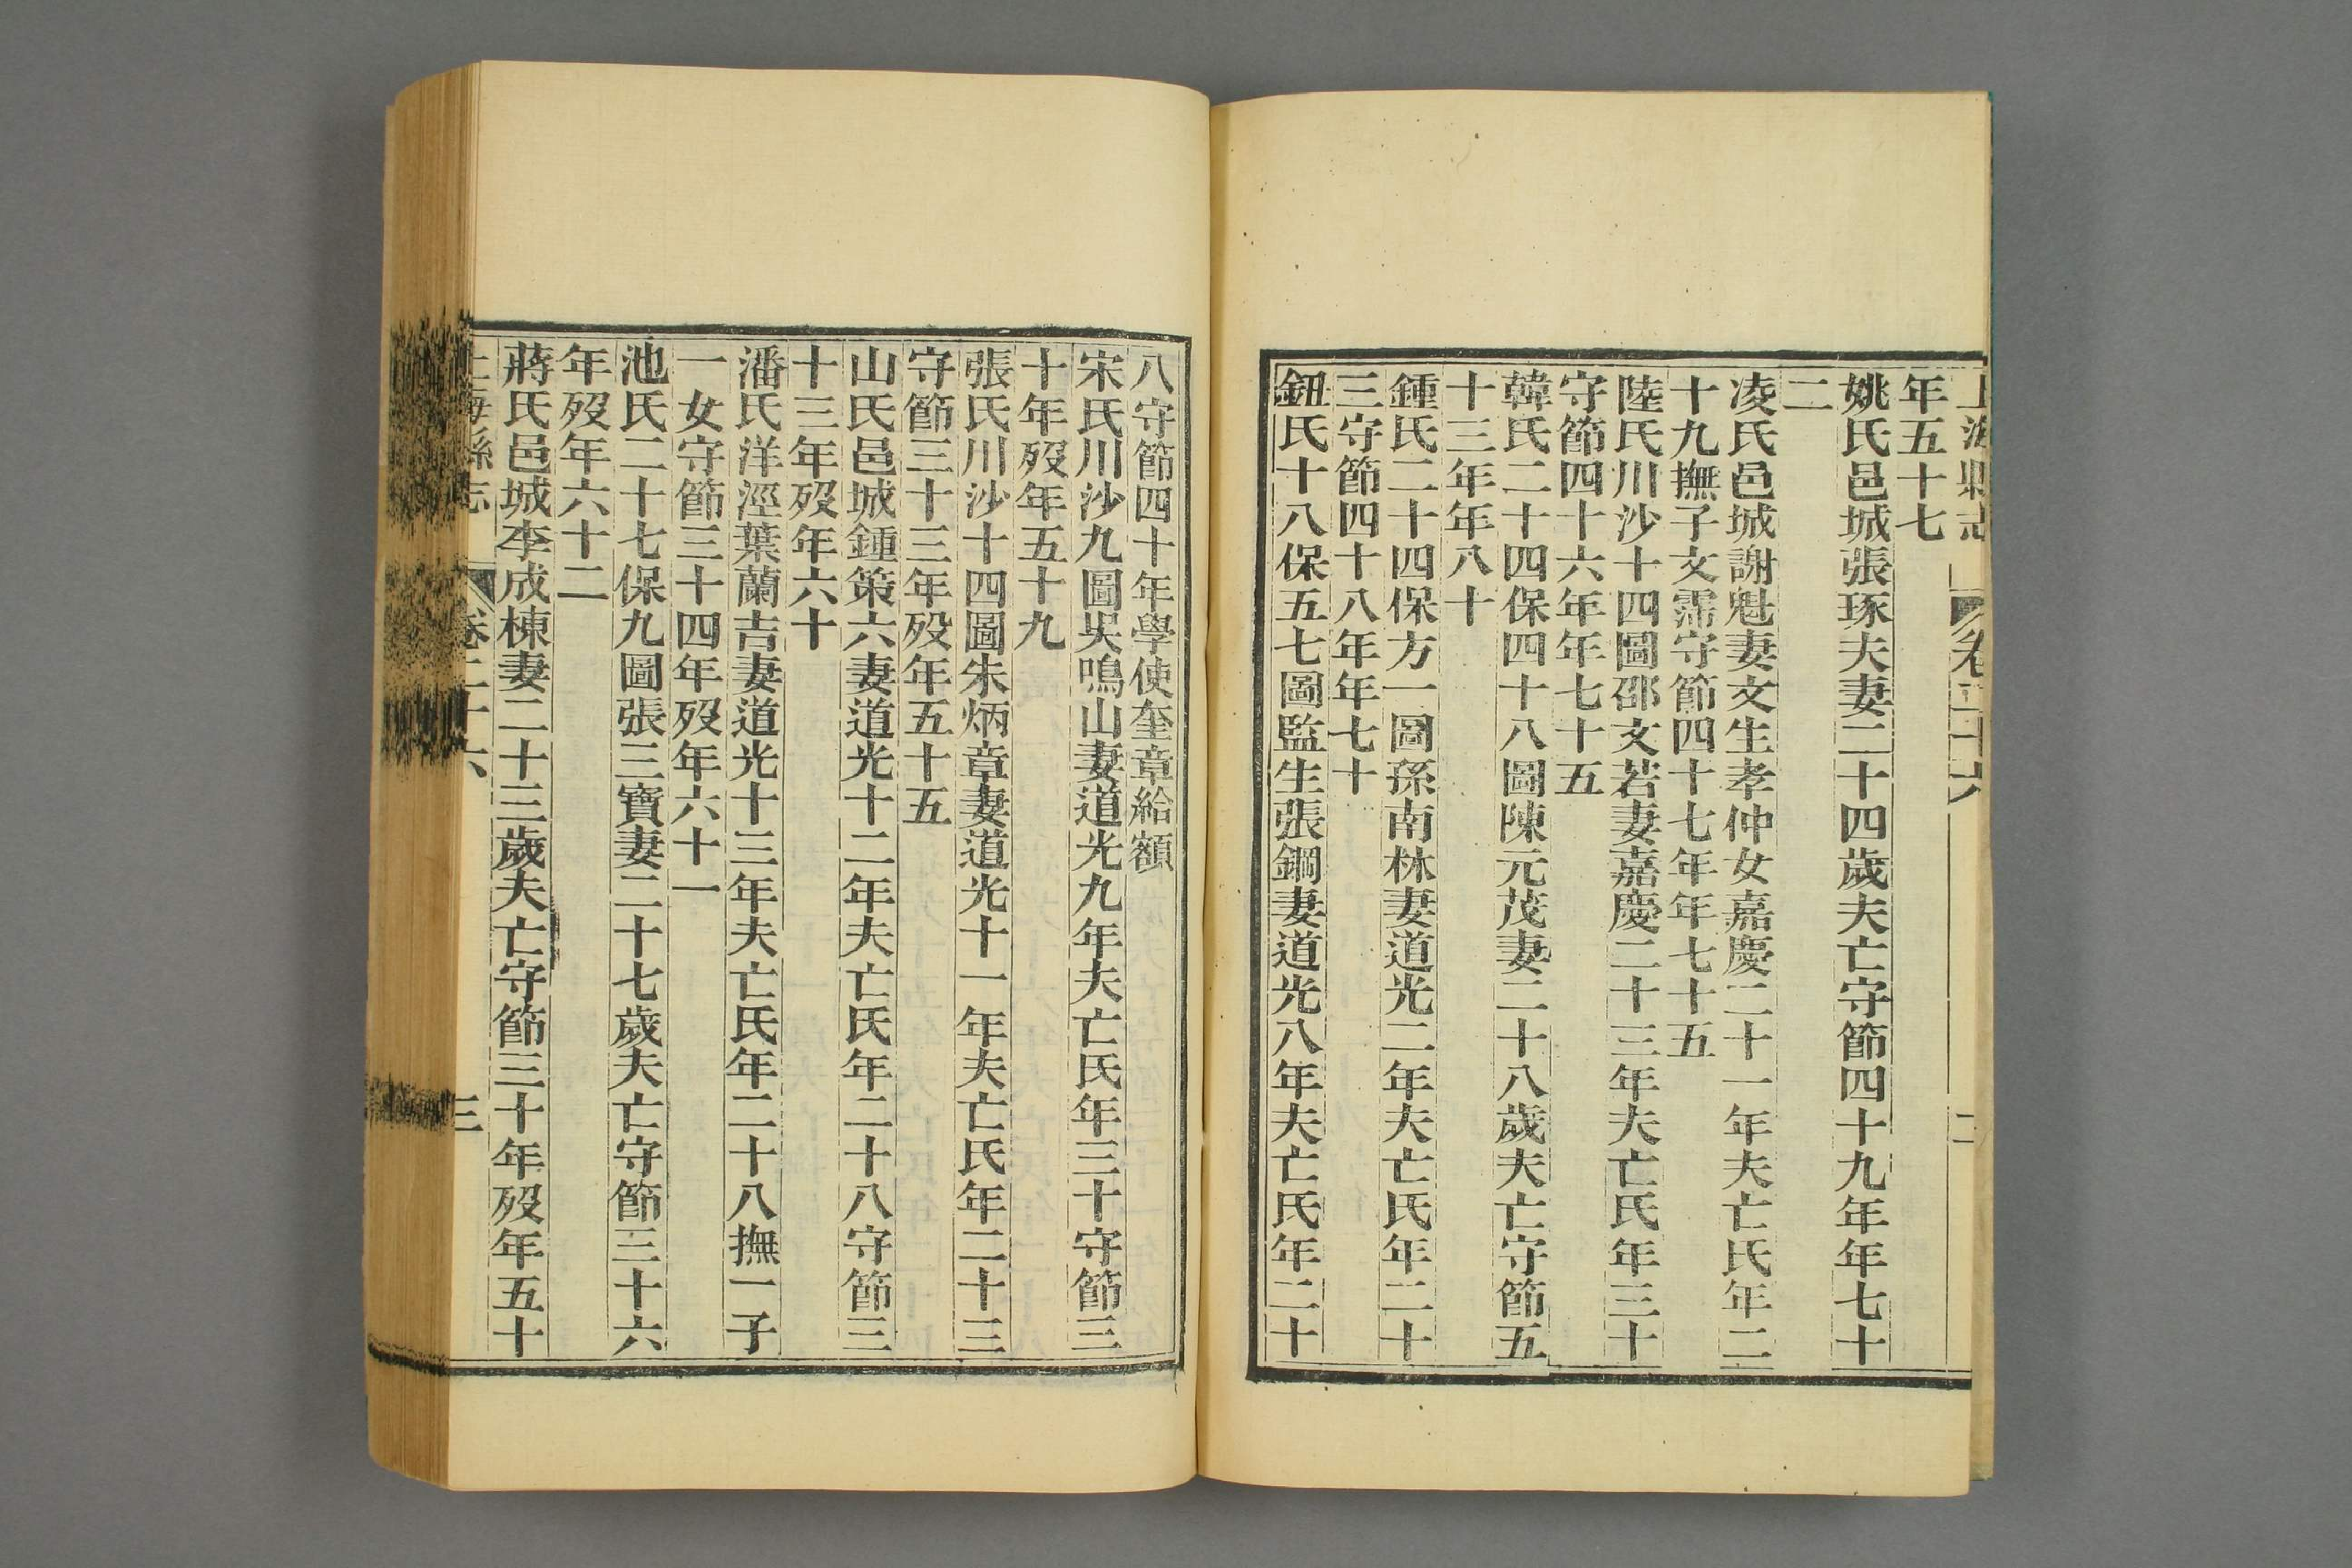 上海縣志
卷二十六
二
年五十七
姚氏邑城張琢夫妻二十四歲夫亡守節四十九年年七十
二
凌氏邑城謝魁妻文生孝仲女嘉慶二十一年夫亡氏年二
十九撫子文霈守節四十七年年七十五
陸氏川沙十四圖邵文若妻嘉慶二十三年夫亡氏年三十
守節四十六年年七十五
韓氏二十四保四十八圖陳元茂妻二十八歲夫亡守節五
十三年年八十
鍾氏二十四保方一圖孫南林妻道光二年夫亡氏年二十
三守節四十八年年七十
鈕氏十八保五七圖監生張鋼妻道光八年夫亡氏年二十
八守節四十年學使奎章給額
宋氏川沙九圖吳鳴山妻道光九年夫亡氏年三十守節三
十年歿年五十九
張氏川沙十四圖朱炳章妻道光十一年夫亡氏年二十三
守節三十三年歿年五十五
山氏邑城鍾策六妻道光十二年夫亡氏年二十八守節三
十三年歿年六十
潘氏洋涇葉蘭吉妻道光十三年夫亡氏年二十八撫一子
一女守節三十四年歿年六十一
池氏二十七保九圖張三寶妻二十七歲夫亡守節三十六
年歿年六十二
蔣氏邑城李成棟妻二十三歲夫亡守節三十年歿年五十
上海縣志
卷二十六
三